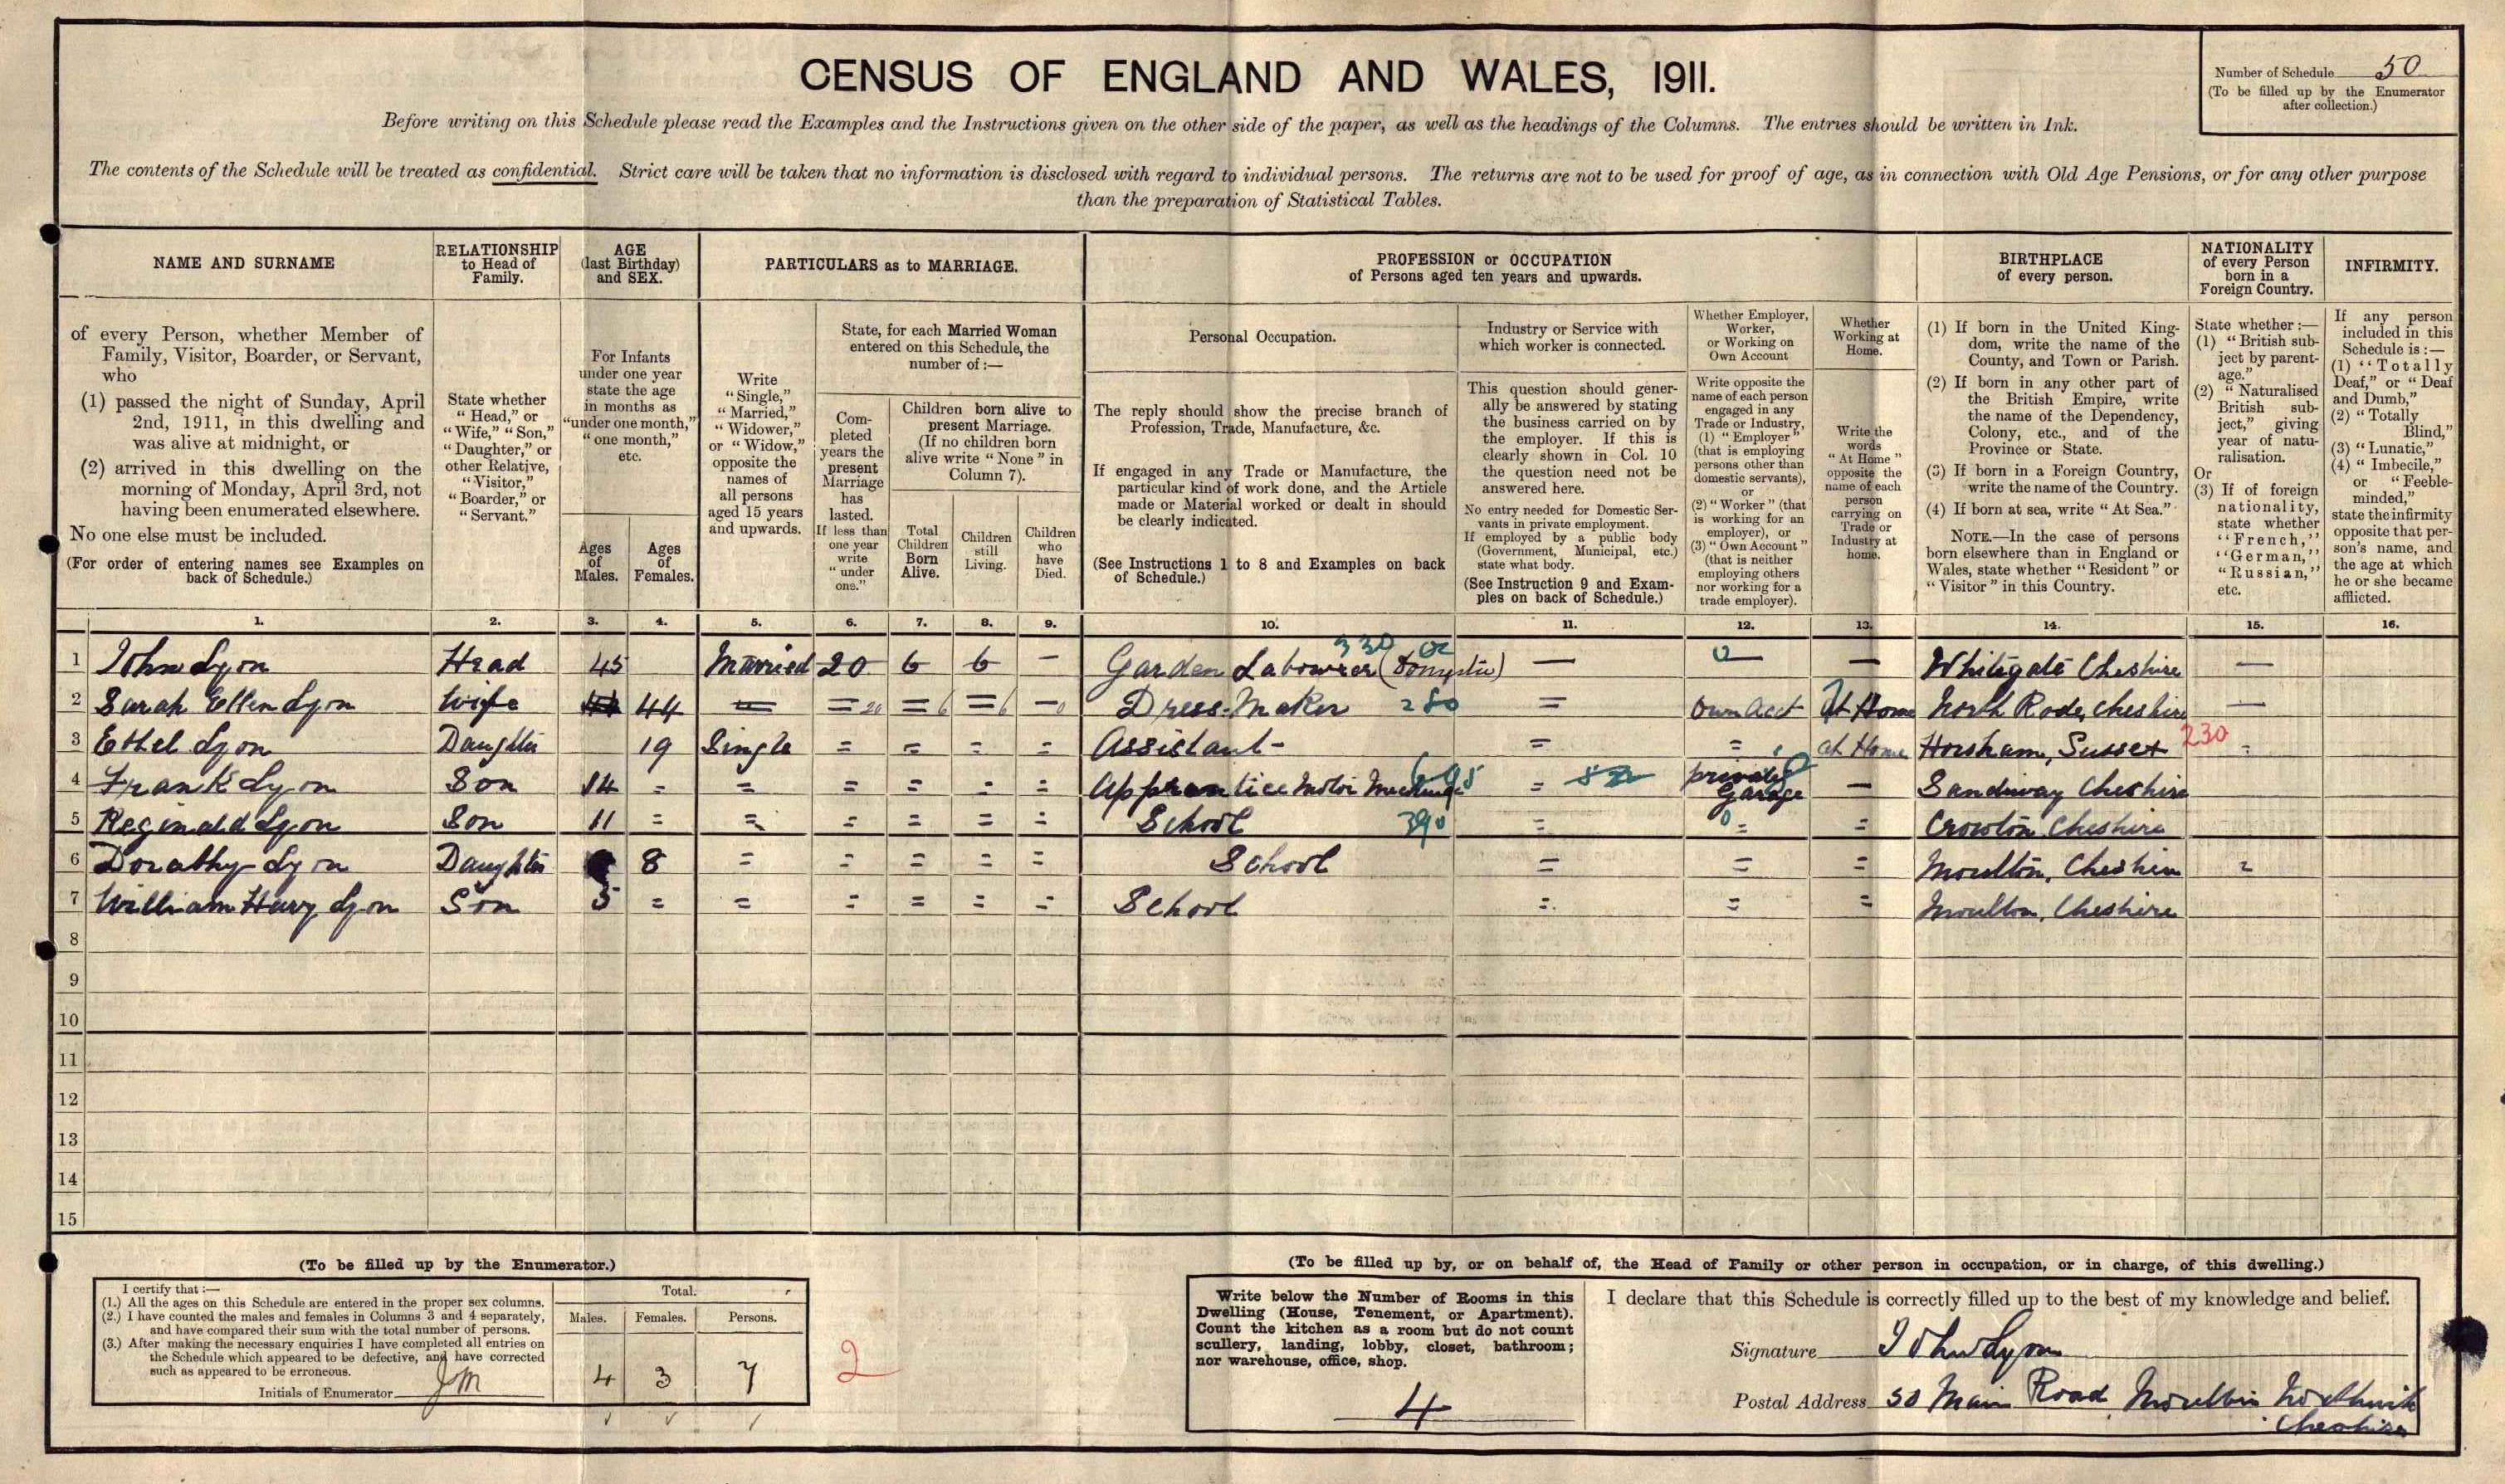 CENSUS OF ENGLAND AND WALES, 1911.
Number of Schedule 50
(To be filled up by the Enumerator
after collection.)
Before writing on this Schedule please read the Examples and the Instructions given on the other side of the paper, as well as the headings of the Columns. The entries should be written in Ink.
The contents of the Schedule will be treated as confidential. Strict care will be taken that no information is disclosed with regard to individual persons. The returns are not to be used for proof of age, as in connection with Old Age Pensions, or for any other purpose
than the preparation of Statistical Tables.
NAME AND SURNAME
of every Person, whether Member of
Family, Visitor, Boarder, or Servant,
who
(1) passed the night of Sunday, April
2nd, 1911, in this dwelling and
was alive at midnight, or
(2) arrived in this dwelling on the
morning of Monday, April 3rd, not
having been enumerated elsewhere.
No one else must be included.
(For order of entering names see Examples on
back of Schedule.)
RELATIONSHIP
to Head of
Family.
State whether
"Head," or
"Wife," "Son,"
"Daughter," or
other Relative,
"Visitor,"
"Boarder," or
"Servant."
AGE
(last Birthday)
and SEX.
For Infants
under one year
state the age
in months as
"under one month,"
"one month,"
etc.
Ages
of
Males.
Ages
of
Females.
PARTICULARS as to MARRIAGE.
Write
"Single,"
"Married,"
"Widower,"
or "Widow,"
opposite the
names of
all persons
aged 15 years
and upwards.
State, for each Married Woman
entered on this Schedule, the
number of :—
Com-
pleted
years the
present
Marriage
has
lasted.
If less than
one year
write
"under
one."
Children born alive to
present Marriage.
(If no children born
alive write "None" in
Column 7).
Total
Children
Born
Alive.
Children
still
Living.
Children
who
have
Died.
PROFESSION or OCCUPATION
of Persons aged ten years and upwards.
Personal Occupation.
The reply should show the precise branch of
Profession, Trade, Manufacture, &c.
If engaged in any Trade or Manufacture, the
particular kind of work done, and the Article
made or Material worked or dealt in should
be clearly indicated.
(See Instructions 1 to 8 and Examples on back
of Schedule.)
Industry or Service with
which worker is connected.
This question should gener-
ally be answered by stating
the business carried on by
the employer. If this is
clearly shown in Col. 10
the question need not be
answered here.
No entry needed for Domestic Ser-
vants in private employment.
If employed by a public body
(Government, Municipal, etc.)
state what body.
(See Instruction 9 and Exam-
ples on back of Schedule.)
Whether Employer,
Worker,
or Working on
Own Account
Write opposite the
name of each person
engaged in any
Trade or Industry,
(1) "Employer"
(that is employing
persons other than
domestic servants),
or
(2) "Worker" (that
is working for an
employer), or
(3) "Own Account"
(that is neither
employing others
nor working for a
trade employer).
Whether
Working at
Home.
Write the
words
"At Home"
opposite the
name of each
person
carrying on
Trade or
Industry at
home.
BIRTHPLACE
of every person.
(1) If born in the United King-
dom, write the name of the
County, and Town or Parish.
(2) If born in any other part of
the British Empire, write
the name of the Dependency,
Colony, etc., and of the
Province or State.
(3) If born in a Foreign Country,
write the name of the Country.
(4) If born at sea, write "At Sea."
NOTE.—In the case of persons
born elsewhere than in England or
Wales, state whether "Resident" or
"Visitor" in this Country.
NATIONALITY
of every Person
born in a
Foreign Country.
State whether :—
(1) "British sub-
ject by parent-
age."
(2) "Naturalised
British sub-
ject," giving
year of natu-
ralisation.
Or
(3) If of foreign
nationality,
state whether
"French,"
"German,"
"Russian,"
etc.
INFIRMITY.
If any person
included in this
Schedule is :—
(1) "Totally
Deaf," or "Deaf
and Dumb,"
(2) "Totally
Blind,"
(3) "Lunatic,"
(4) "Imbecile,"
or "Feeble-
minded,"
state the infirmity
opposite that per-
son's name, and
the age at which
he or she became
afflicted.
1. 2. 3. 4. 5. 6. 7. 8. 9. 10. 11. 12. 13. 14. 15. 16.
1 John Lyon Head 45 Married 20 6 6 — Garden Labourer (Domestic) 330 — 0 — — Whitegate Cheshire —
2 Sarah Ellen Lyon Wife 44 = = 20 = 6 = 6 — 0 Dress-Maker 280 = Own Acct At Home North Rode, Cheshire —
3 Ethel Lyon Daughter 19 Single = = = = Assistant - = = at Home Horsham, Sussex 230 =
4 Frank Lyon Son 14 = = = = = = Apprentice Motor Mechanic = private Garage — Sandiway Cheshire
5 Reginald Lyon Son 11 = = = = = = School 390 = 0 = = Crowton Cheshire
6 Dorathy Lyon Daughter 8 = = = = = School = = = Moulton, Cheshire =
7 William Harry Lyon Son 5 = = = = = = School = = = Moulton, Cheshire
8
9
10
11
12
13
14
15
(To be filled up by the Enumerator.)
I certify that :—
(1.) All the ages on this Schedule are entered in the proper sex columns.
(2.) I have counted the males and females in Columns 3 and 4 separately,
and have compared their sum with the total number of persons.
(3.) After making the necessary enquiries I have completed all entries on
the Schedule which appeared to be defective, and have corrected
such as appeared to be erroneous.
Initials of Enumerator JM
Total.
Males. Females. Persons.
4 3 7
2
(To be filled up by, or on behalf of, the Head of Family or other person in occupation, or in charge, of this dwelling.)
Write below the Number of Rooms in this
Dwelling (House, Tenement, or Apartment).
Count the kitchen as a room but do not count
scullery, landing, lobby, closet, bathroom;
nor warehouse, office, shop.
4
I declare that this Schedule is correctly filled up to the best of my knowledge and belief.
Signature John Lyon
Postal Address 50 Main Road Moulton Northwich
Cheshire